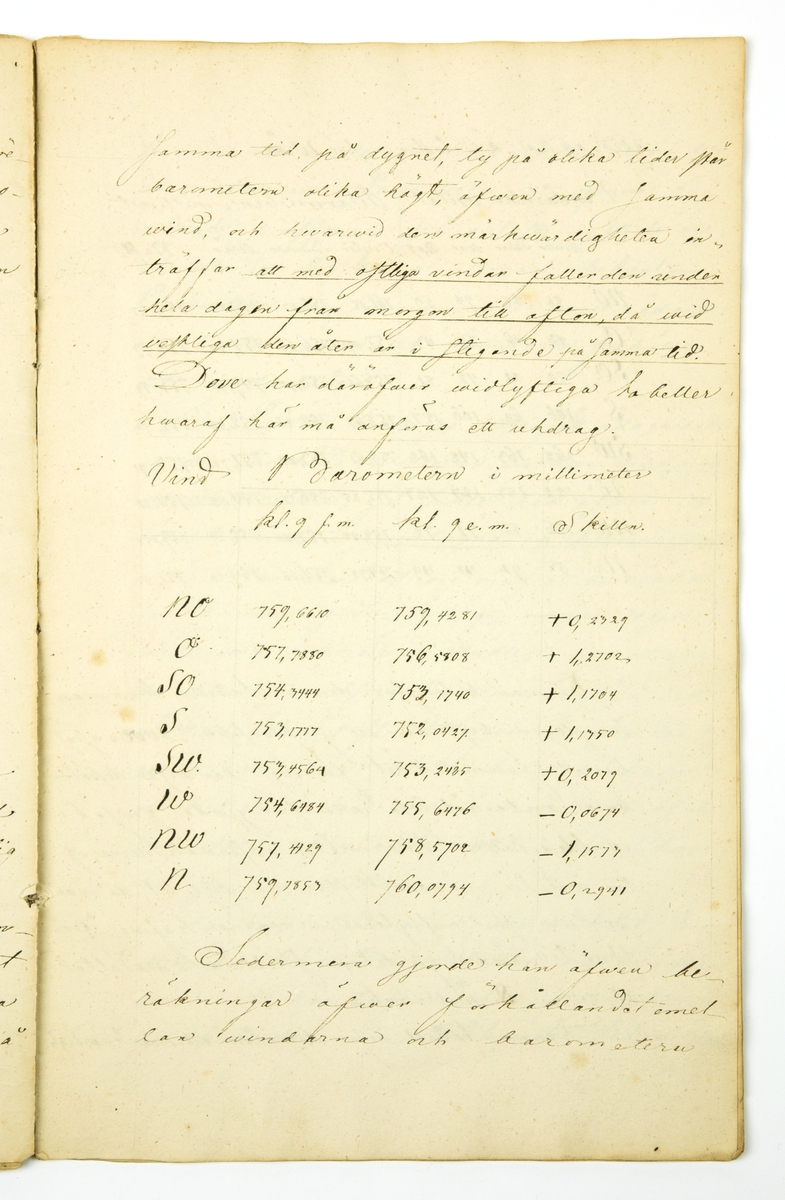 samma tid på dygnet, ty på olika tider står
barometern olika högt, äfwen med samma
wind, och hwarwid den märkwärdigheten in„
träffar att med ostliga vindar faller den under
hela dagen från morgon till afton, då wid
vestliga den åter är i stigande på samma tid.
Dove har däröfwer widlyftiga tabeller
hwaraf här må anföras ett uhdrag.
Vind Barometern i millimeter
kl. 9 f.m. kl. 9 e.m. Skilln.
NO 759,6610 759,4281 +0,2329
O 757,7880 756,5808 + 1,2702
SO 754,3444 753,1740 + 1,1704
S 753,1777 752,0427 + 1,1350
SW. 753,4564 753,2485 +0,2079
W 754,6484 755,6476 –0,0674
NW 757,4129 758,5702 –1,1573
N 759,7853 760,0794 –0,2941
Sedermera gjorde han äfwen be-
räkningar öfwer förhållandet emel-
lan windarna och barometern